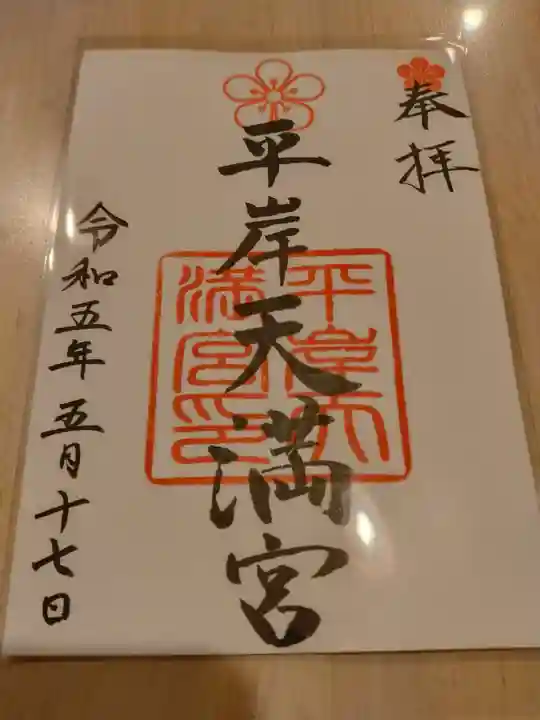 奉拝
平岸天満宮
平岸天
満宮印
令和五年五月十七日